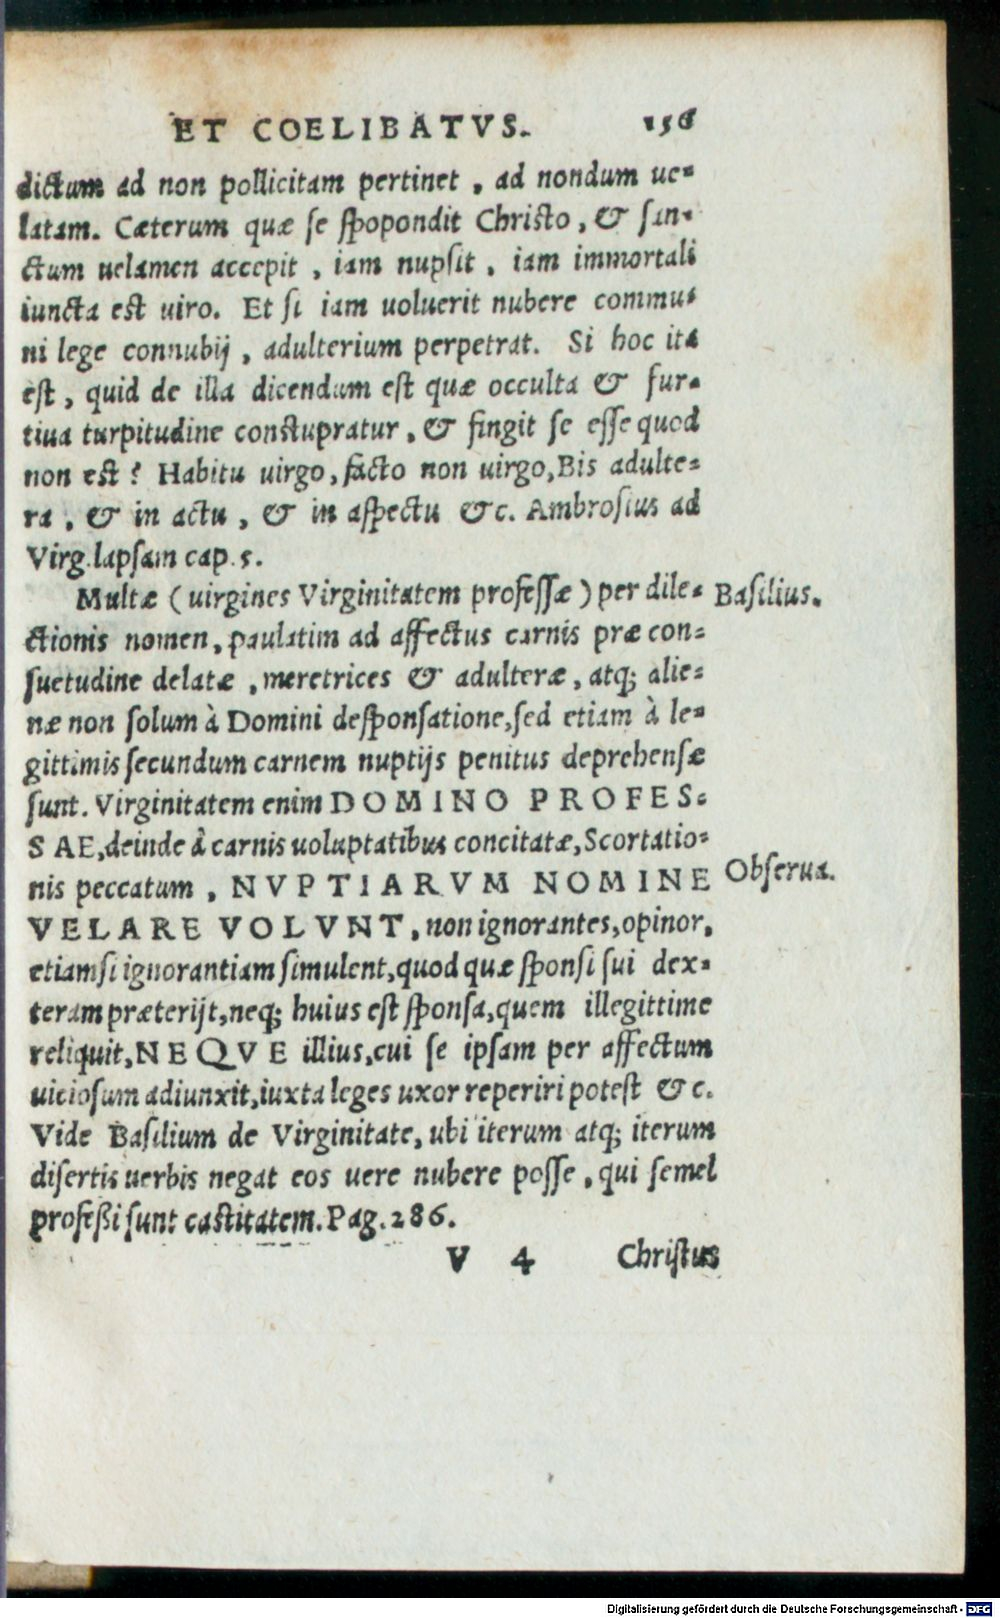 ET COELIBATVS. 156
dictum ad non pollicitam pertinet, ad nondum ue-
latam. Cæterum quæ se spopondit Christo, & san-
ctum uelamen accepit, iam nupsit, iam immortali
iuncta est uiro. Et si iam uoluerit nubere commu-
ni lege connubij, adulterium perpetrat. Si hoc ita
est, quid de illa dicendum est quæ occulta & fur-
tiua turpitudine constupratur, & fingit se esse quod
non est? Habitu uirgo, facto non uirgo, Bis adulte-
ra, & in actu, & in aspectu &c. Ambrosius ad
Virg. lapsam cap. 5.
Multæ (uirgines Virginitatem professæ) per dile- Basilius.
ctionis nomen, paulatim ad affectus carnis præ con-
suetudine delatæ, meretrices & adulteræ, atq; alie-
næ non solum à Domini desponsatione, sed etiam à le-
gittimis secundum carnem nuptijs penitus deprehensæ
sunt. Virginitatem enim DOMINO PROFES-
SAE, deinde à carnis uoluptatibus concitatæ, Scortatio-
nis peccatum, NVPTIARVM NOMINE Obserua.
VELARE VOLVNT, non ignorantes, opinor,
etiamsi ignorantiam simulent, quod quæ sponsi sui dex-
teram præterijt, neq; huius est sponsa, quem illegittime
reliquit, NEQVE illius, cui se ipsam per affectum
uiciosum adiunxit, iuxta leges uxor reperiri potest &c.
Vide Basilium de Virginitate, ubi iterum atq; iterum
disertis uerbis negat eos uere nubere posse, qui semel
profeßi sunt castitatem. Pag. 286.
V 4 Christus
Digitalisierung gefördert durch die Deutsche Forschungsgemeinschaft - DFG